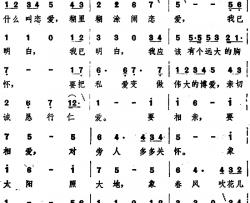 1 2 3 4 5 4 5 2 2 6 7 5 - 5 5 6
什么叫恋爱，糊里糊涂闹恋爱，我已
1 1 0 1 2 3 4 5 · 5 3 5 3 2 1 ·
明白，我已明白，我应该有个远大的胸
7 - · 1 1 6 · 6 7 · 7 1 2 3 4 5 4 3
怀，要把私爱变做伟大的博爱，亲切
2 6 7 1 2 · 1 - 1 · 1 1
诚恳行仁爱。要相亲，要
7 5 - 5 6 4 · 4 3 2 3 - 3
相爱，对旁人多多关怀。象
1 6 - 1 7 5 - 5 6 · 4 3 2
太阳照大地，象春风吹花儿